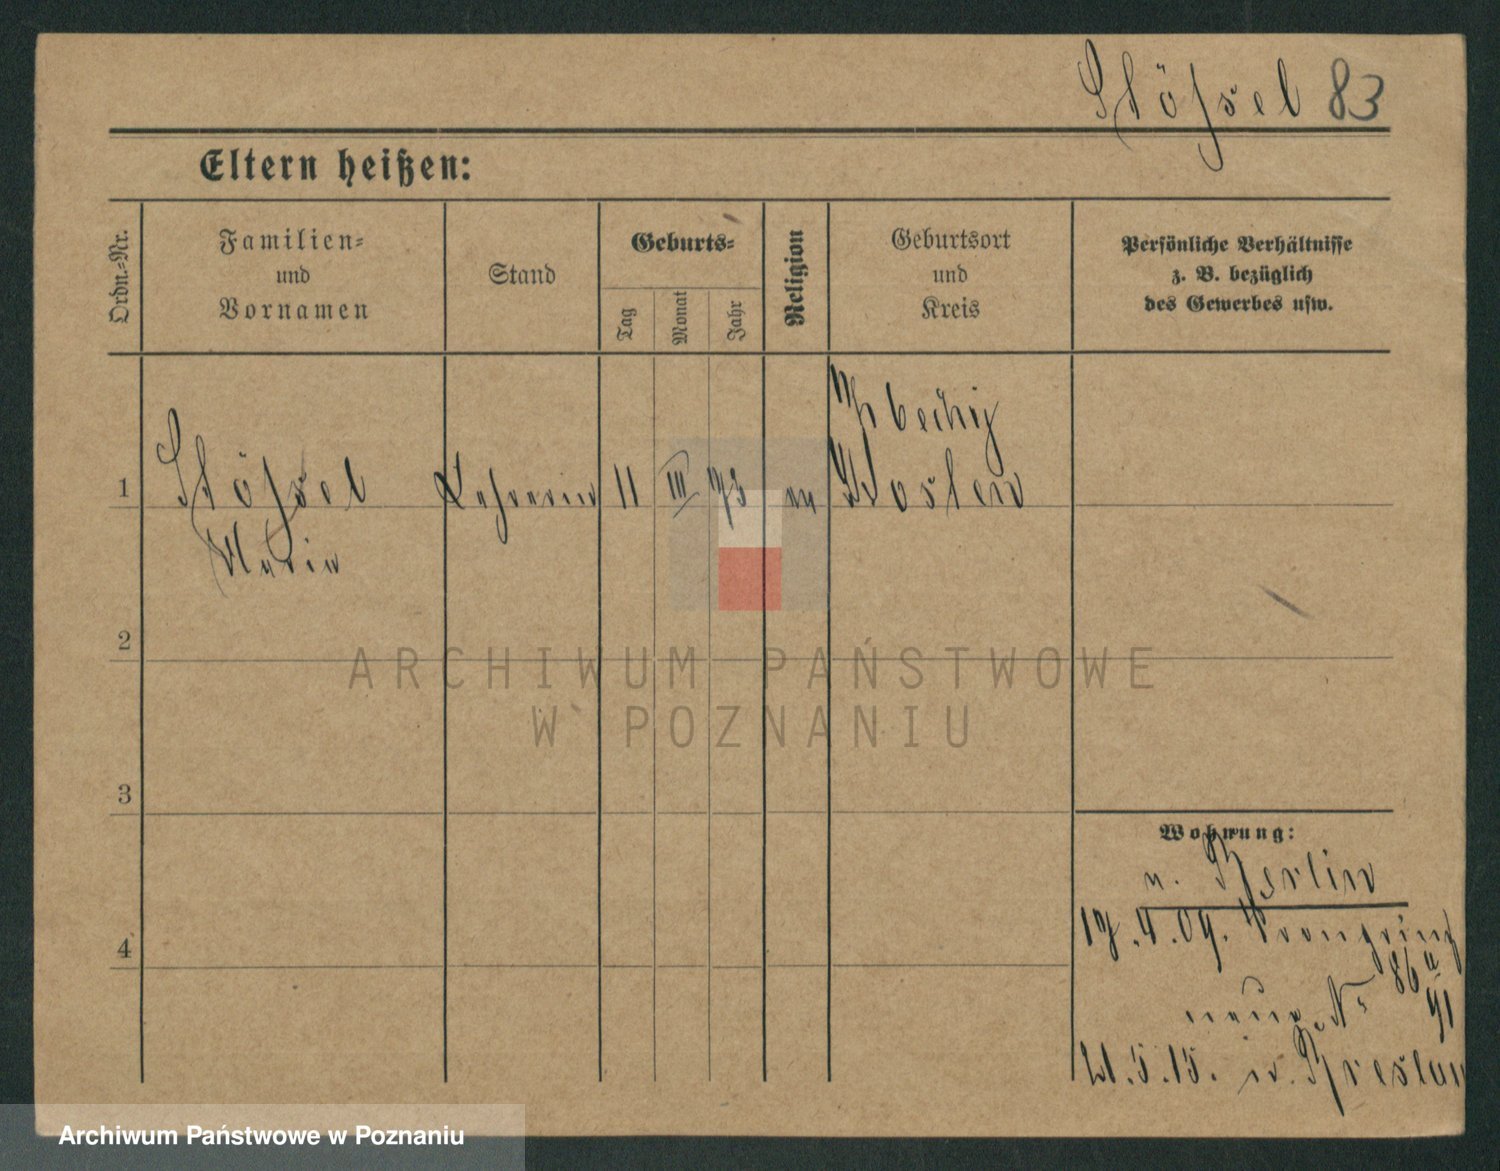 Stößel 83
Eltern heißen:
Ordn.-Nr.
Familien-
und
Vornamen
Stand
Geburts-
Tag
Monat
Jahr
Religion
Geburtsort
und
Kreis
Persönliche Verhältnisse
z. B. bezüglich
des Gewerbes usw.
1
Stößel
Maria
Lehrerin
11
III
73
ev
Kosten
2
3
4
Wohnung:
n. Berlin
17.4.09. Kronprinz
86 II
neue Nr 91
21.5.15. in Breslau
ARCHIWUM PAŃSTWOWE
W POZNANIU
Archiwum Państwowe w Poznaniu